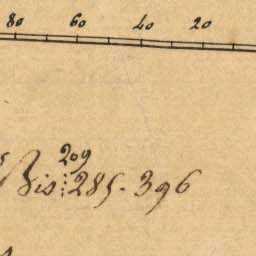 80 60 40 20
209
Bis: 285. 396